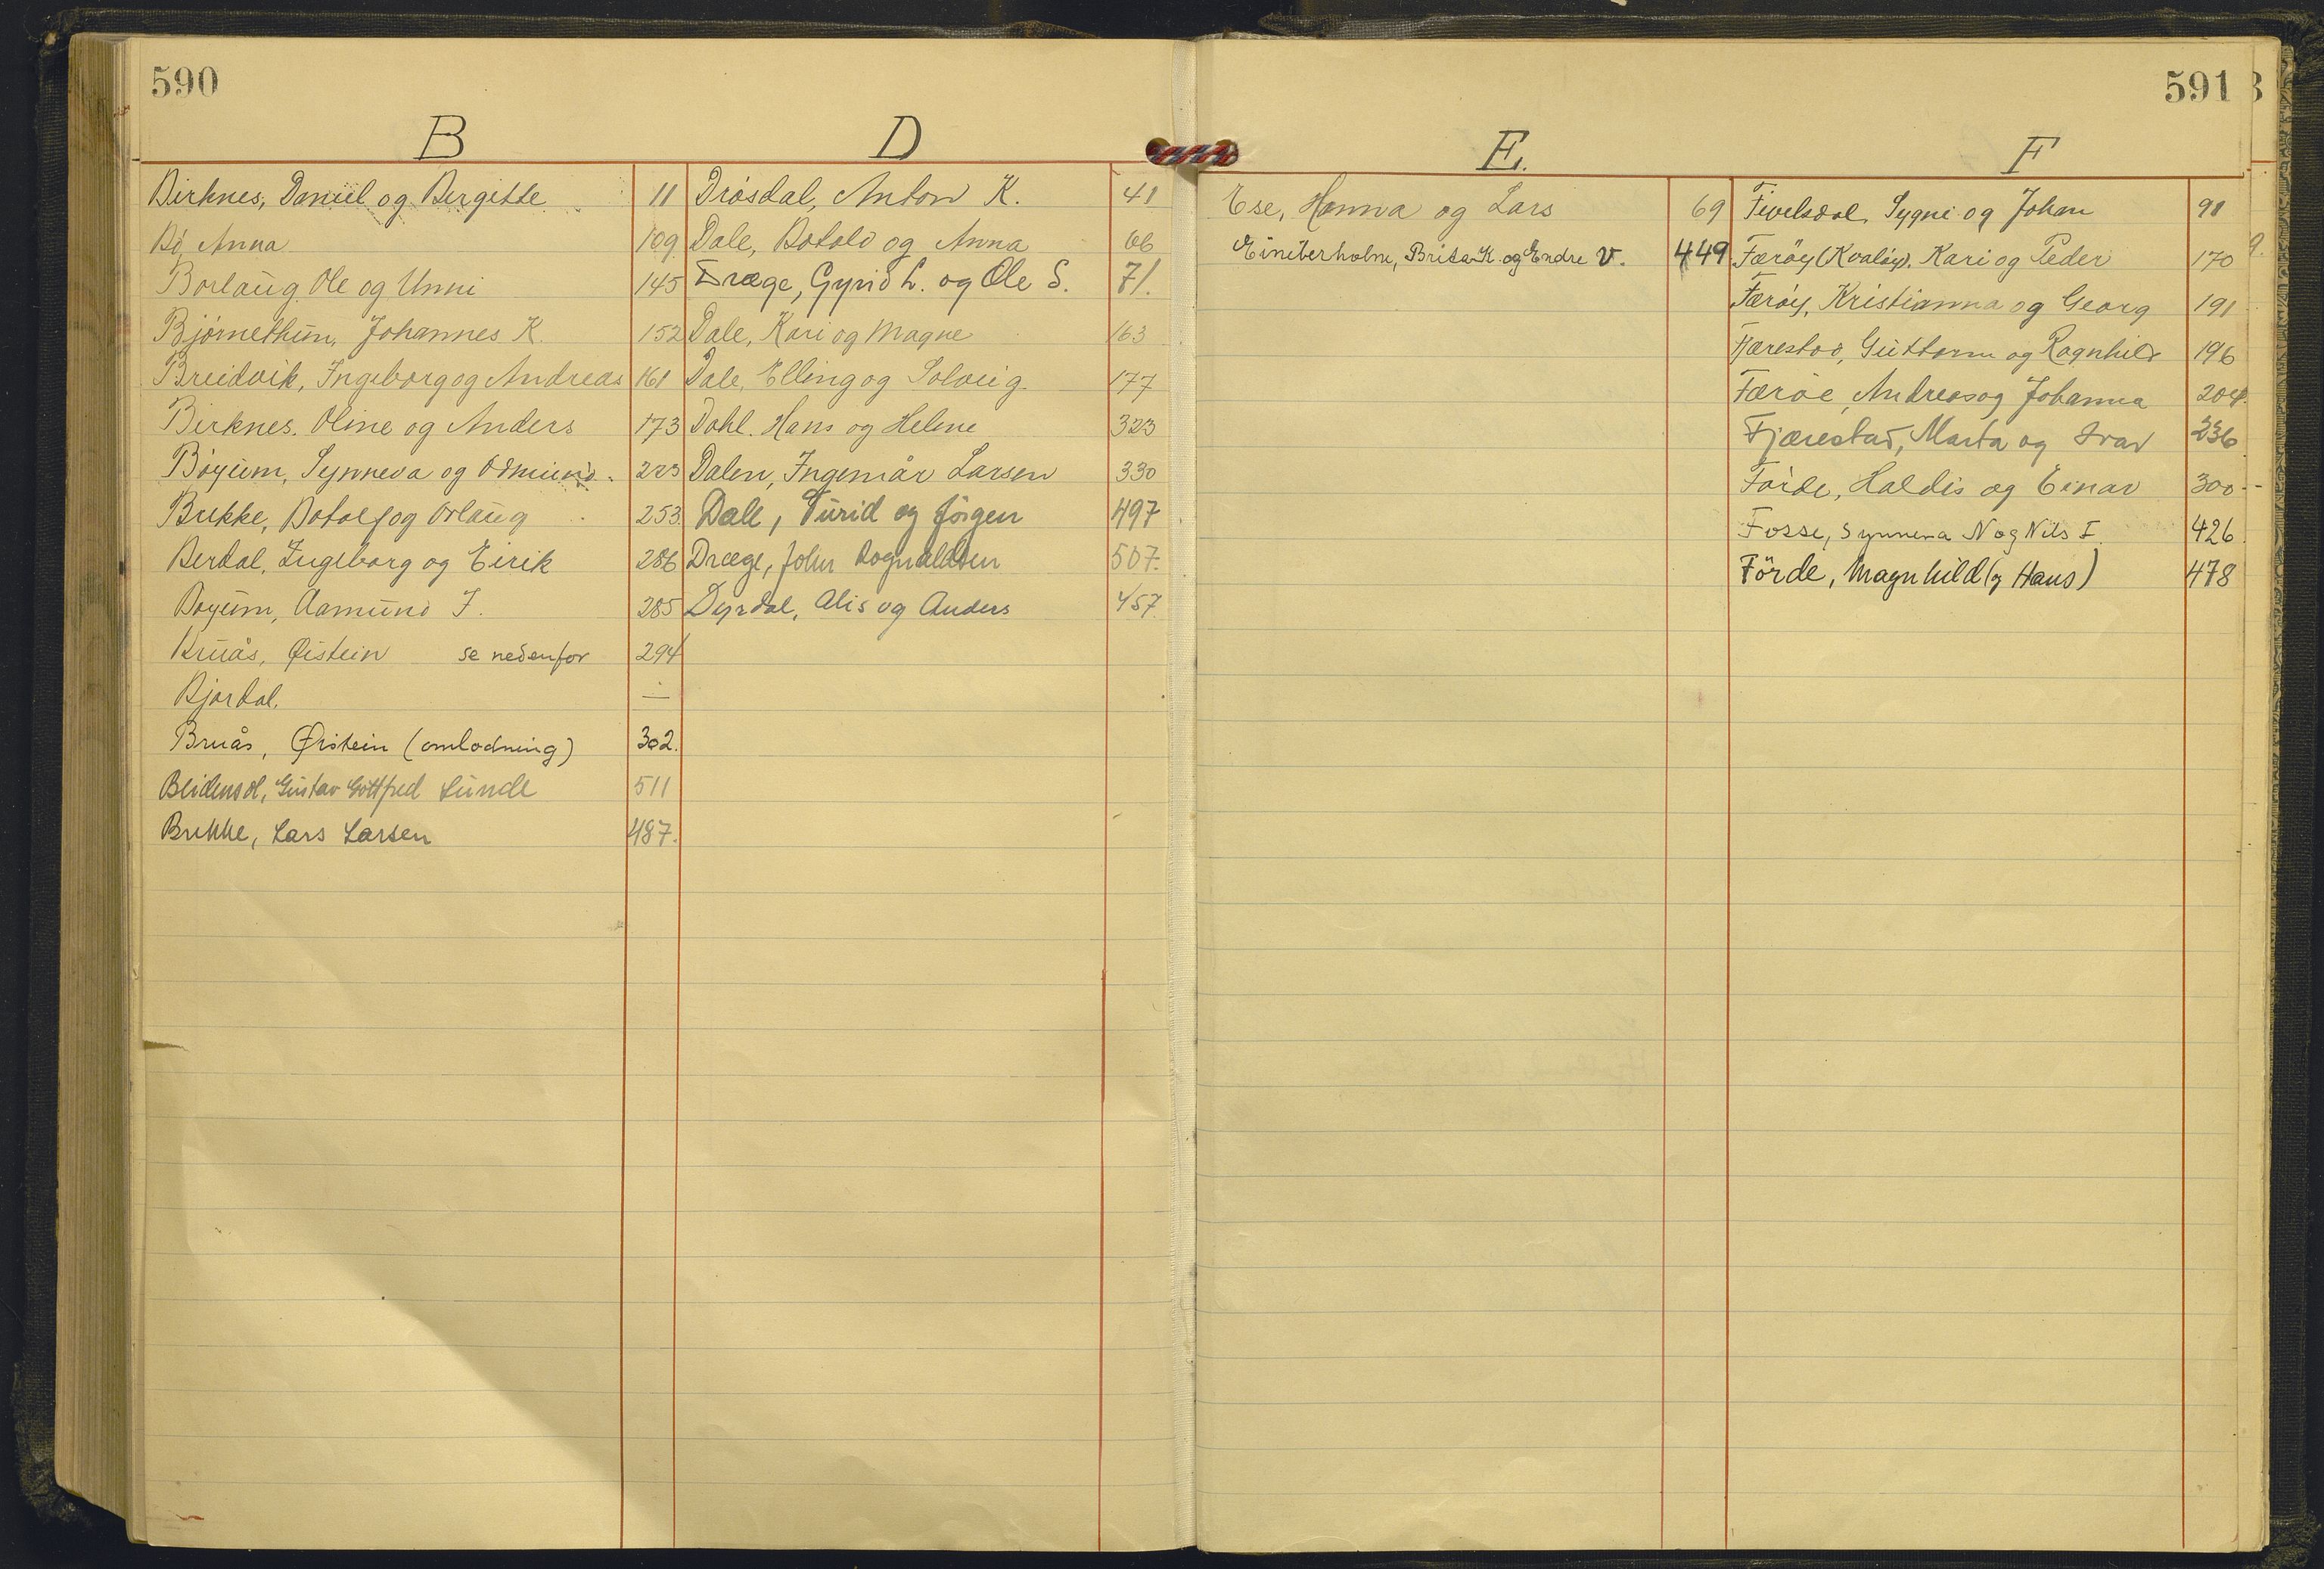 590
B
Birknes, Daniel og Bergitte 11
Bö Anna 109
Borlaug Ole og Unni 145
Björnethun, Johannes K. 152
Breidvik, Ingeborg og Andreas 161
Birknes. Oline og Anders 173
Böyum, Synneva og Odmund. 223
Brekke, Botolf og Orlaug 253.
Berdal, Ingeborg og Eirik 286
Böyum, Aamund J. 285
Bruås, Øistein se nedenfor 294
Bjordal. —
Bruås, Øistein (omlodning) 302.
Bleidensol, Gustav Gottfred Lunde 511
Brekke, Lars Larsen 487.
D
Drösdal, Anton K. 41
Dale, Botolv og Anna 66
Dræge, Gyrid L. og Ole S. 71.
Dale, Kari og Magne 163
Dale, Elling og Solveig 177
Dahl. Hans og Helene 323
Dalen, Ingemår Larsen 330
Dale, Turid og Jörgen 497
Dræge, John Rognaldsen 507.
Dyrdal, Alis og Anders 457.
591
E.
Ese, Hanna og Lars 69
Eineterholm, Brita K. og Endre V. 449
F
Fivelsdal, Sygni og Johan 91
Færöy (Kvalöy). Kari og Peder 170
Færöy, Kristianna og Georg 191
Fjærestad, Guttorm og Ragnhild 196
Færöe, Andreas og Johanna 204.
Fjærestad, Marta og Ivar 236
Förde, Haldis og Einar 300-
Fosse, Synneva N og Nils I. 426
Förde, Magnhild (og Hans) 478